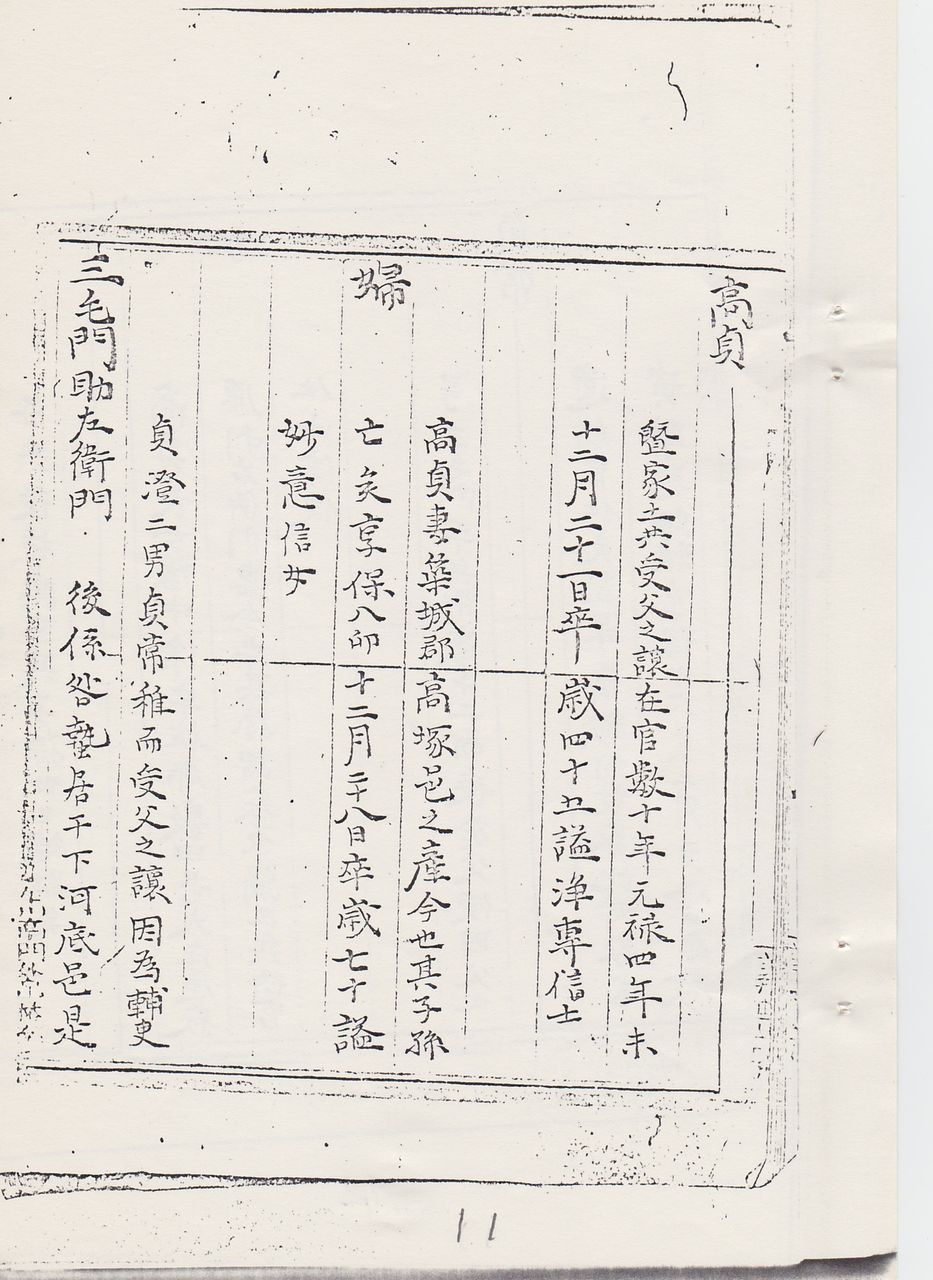 高貞
曁家土共受父之讓在官數十年元禄四年未
十二月二十一日卒歳四十五謚浄専信士
婦
高貞妻築城郡高塚邑之産今也其子孫
亡矣享保八卯十二月二十八日卒歳七十謚
妙意信女
貞澄二男貞常稚而受父之讓因為輔吏
三毛門助左衛門 後係咎蟄居于下河底邑是
11